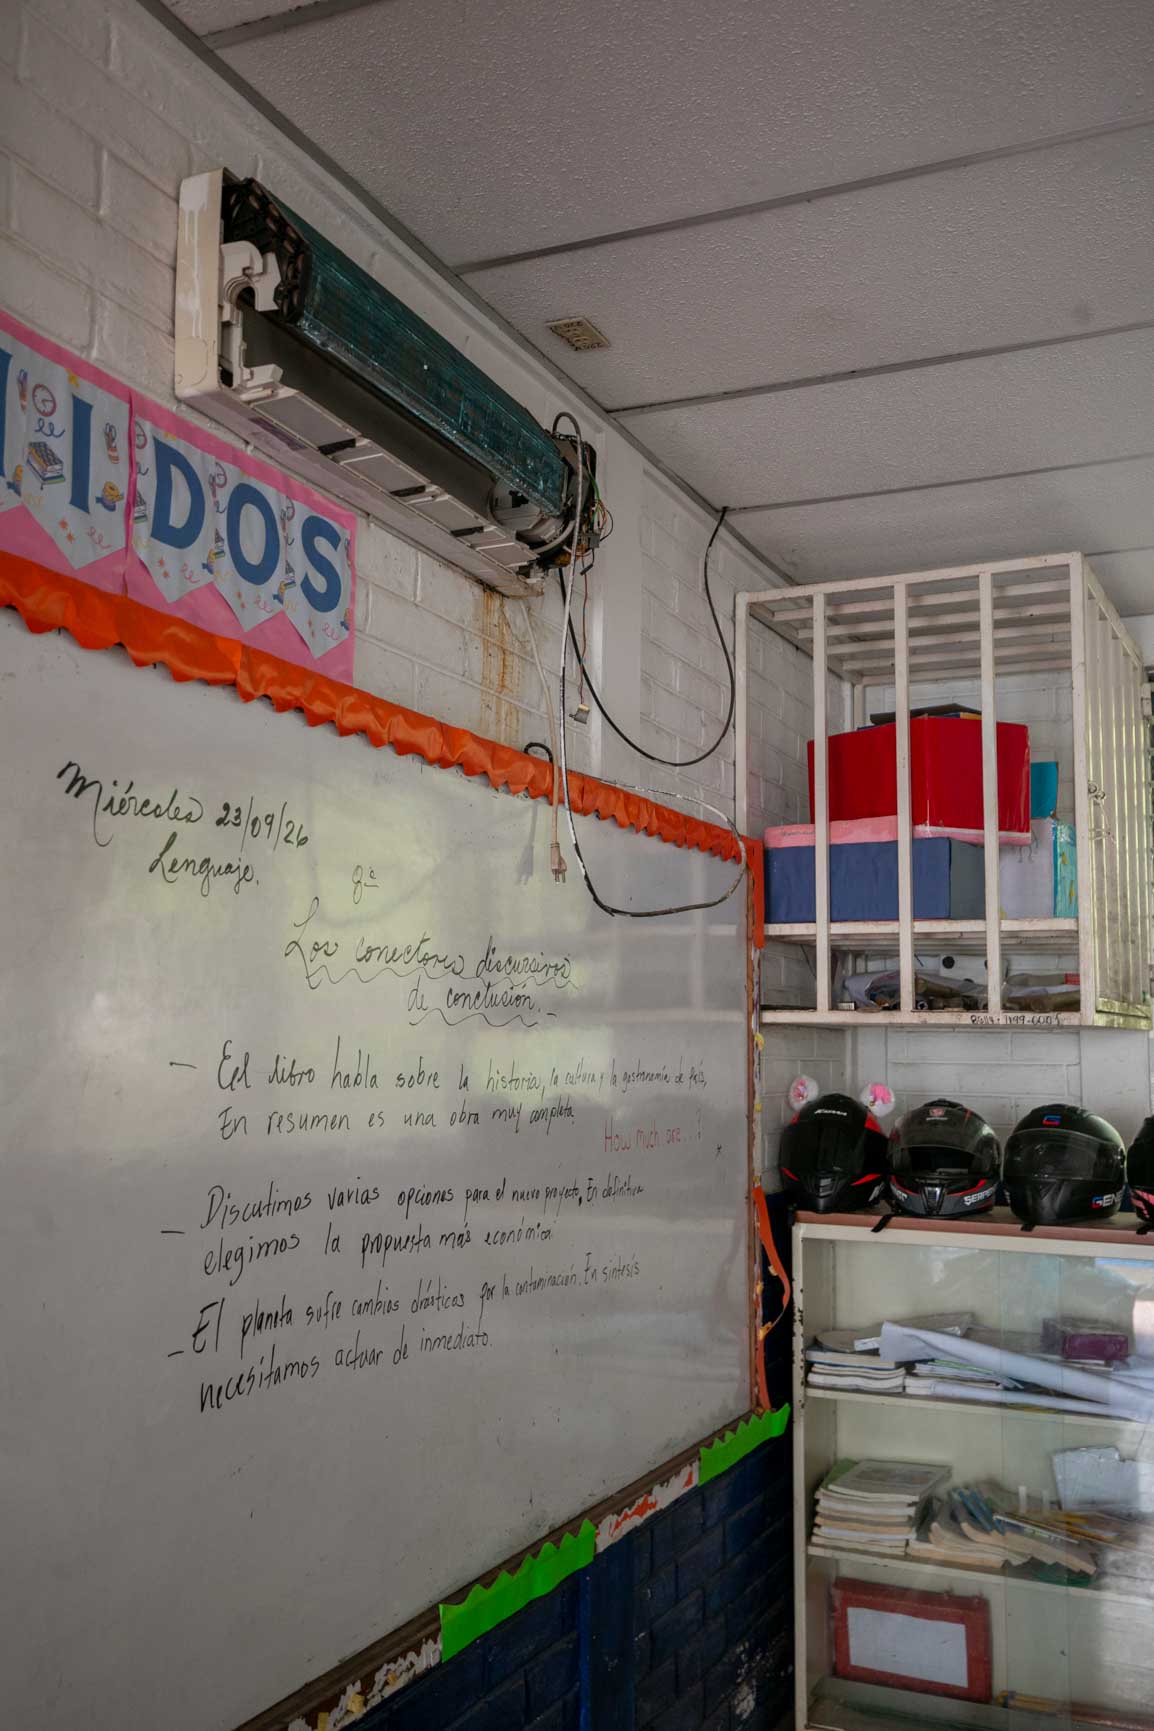 IDOS
Miércoles 23/09/26
Lenguaje.
8º
Los conectores discursivos
de conclusión.
— El libro habla sobre la historia, la cultura y la gastronomía de país,
En resumen es una obra muy completa.
How much are...?
— Discutimos varias opciones para el nuevo proyecto, En definitiva
elegimos la propuesta más económica
— El planeta sufre cambios drásticos por la contaminación. En síntesis
necesitamos actuar de inmediato.